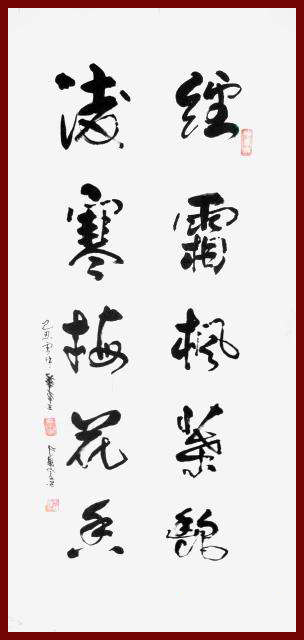 經霜楓葉艷
凌寒梅花香
己丑